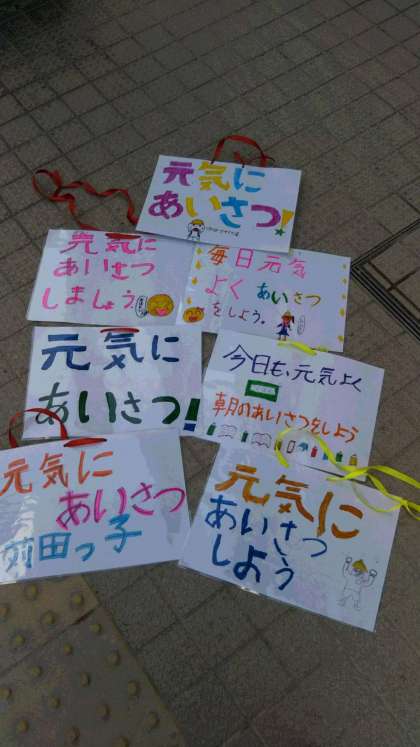 元気に
あいさつ!
元気に
あいさつ
しましょう
毎日元気
よくあいさつ
をしよう。
元気に
あいさつ!
今日も、元気よく
朝のあいさつをしよう
元気に
あいさつ
前田っ子
元気に
あいさつ
しよう